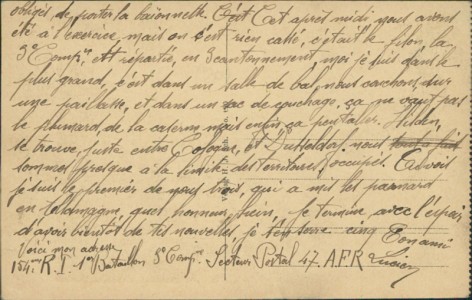 obligés de porter la baïonnette. C'est Cet après midi nous avons
été à l'exercice, mais on s'est rien cassé, c'était le filon, la
3e Compie, est répartie, en 3 cantonnement moi je suis dans le
plus grand, c'est dans un salle de bal, nous couchons, sur
une paillasse, et dans un sac de couchage, ça ne vaut pas
le plumard de la caserne mais enfin ça peut aller. Hilden,
se trouve, juste entre Cologne, et Dusseldorf. nous tout à fait
sommes presque à la limite des territoires occupés. Tu vois
je suis le premier de nous trois, qui a mis les
en Allemagne, quel honneur, hein, Je termine avec l'espoir
d'avoir bientôt de tes nouvelles, je te serre cinq Ton ami
Voici mon adresse
154me R. I. 1er Bataillon 3e Compie Secteur Postal 47. A.F.R Lucien